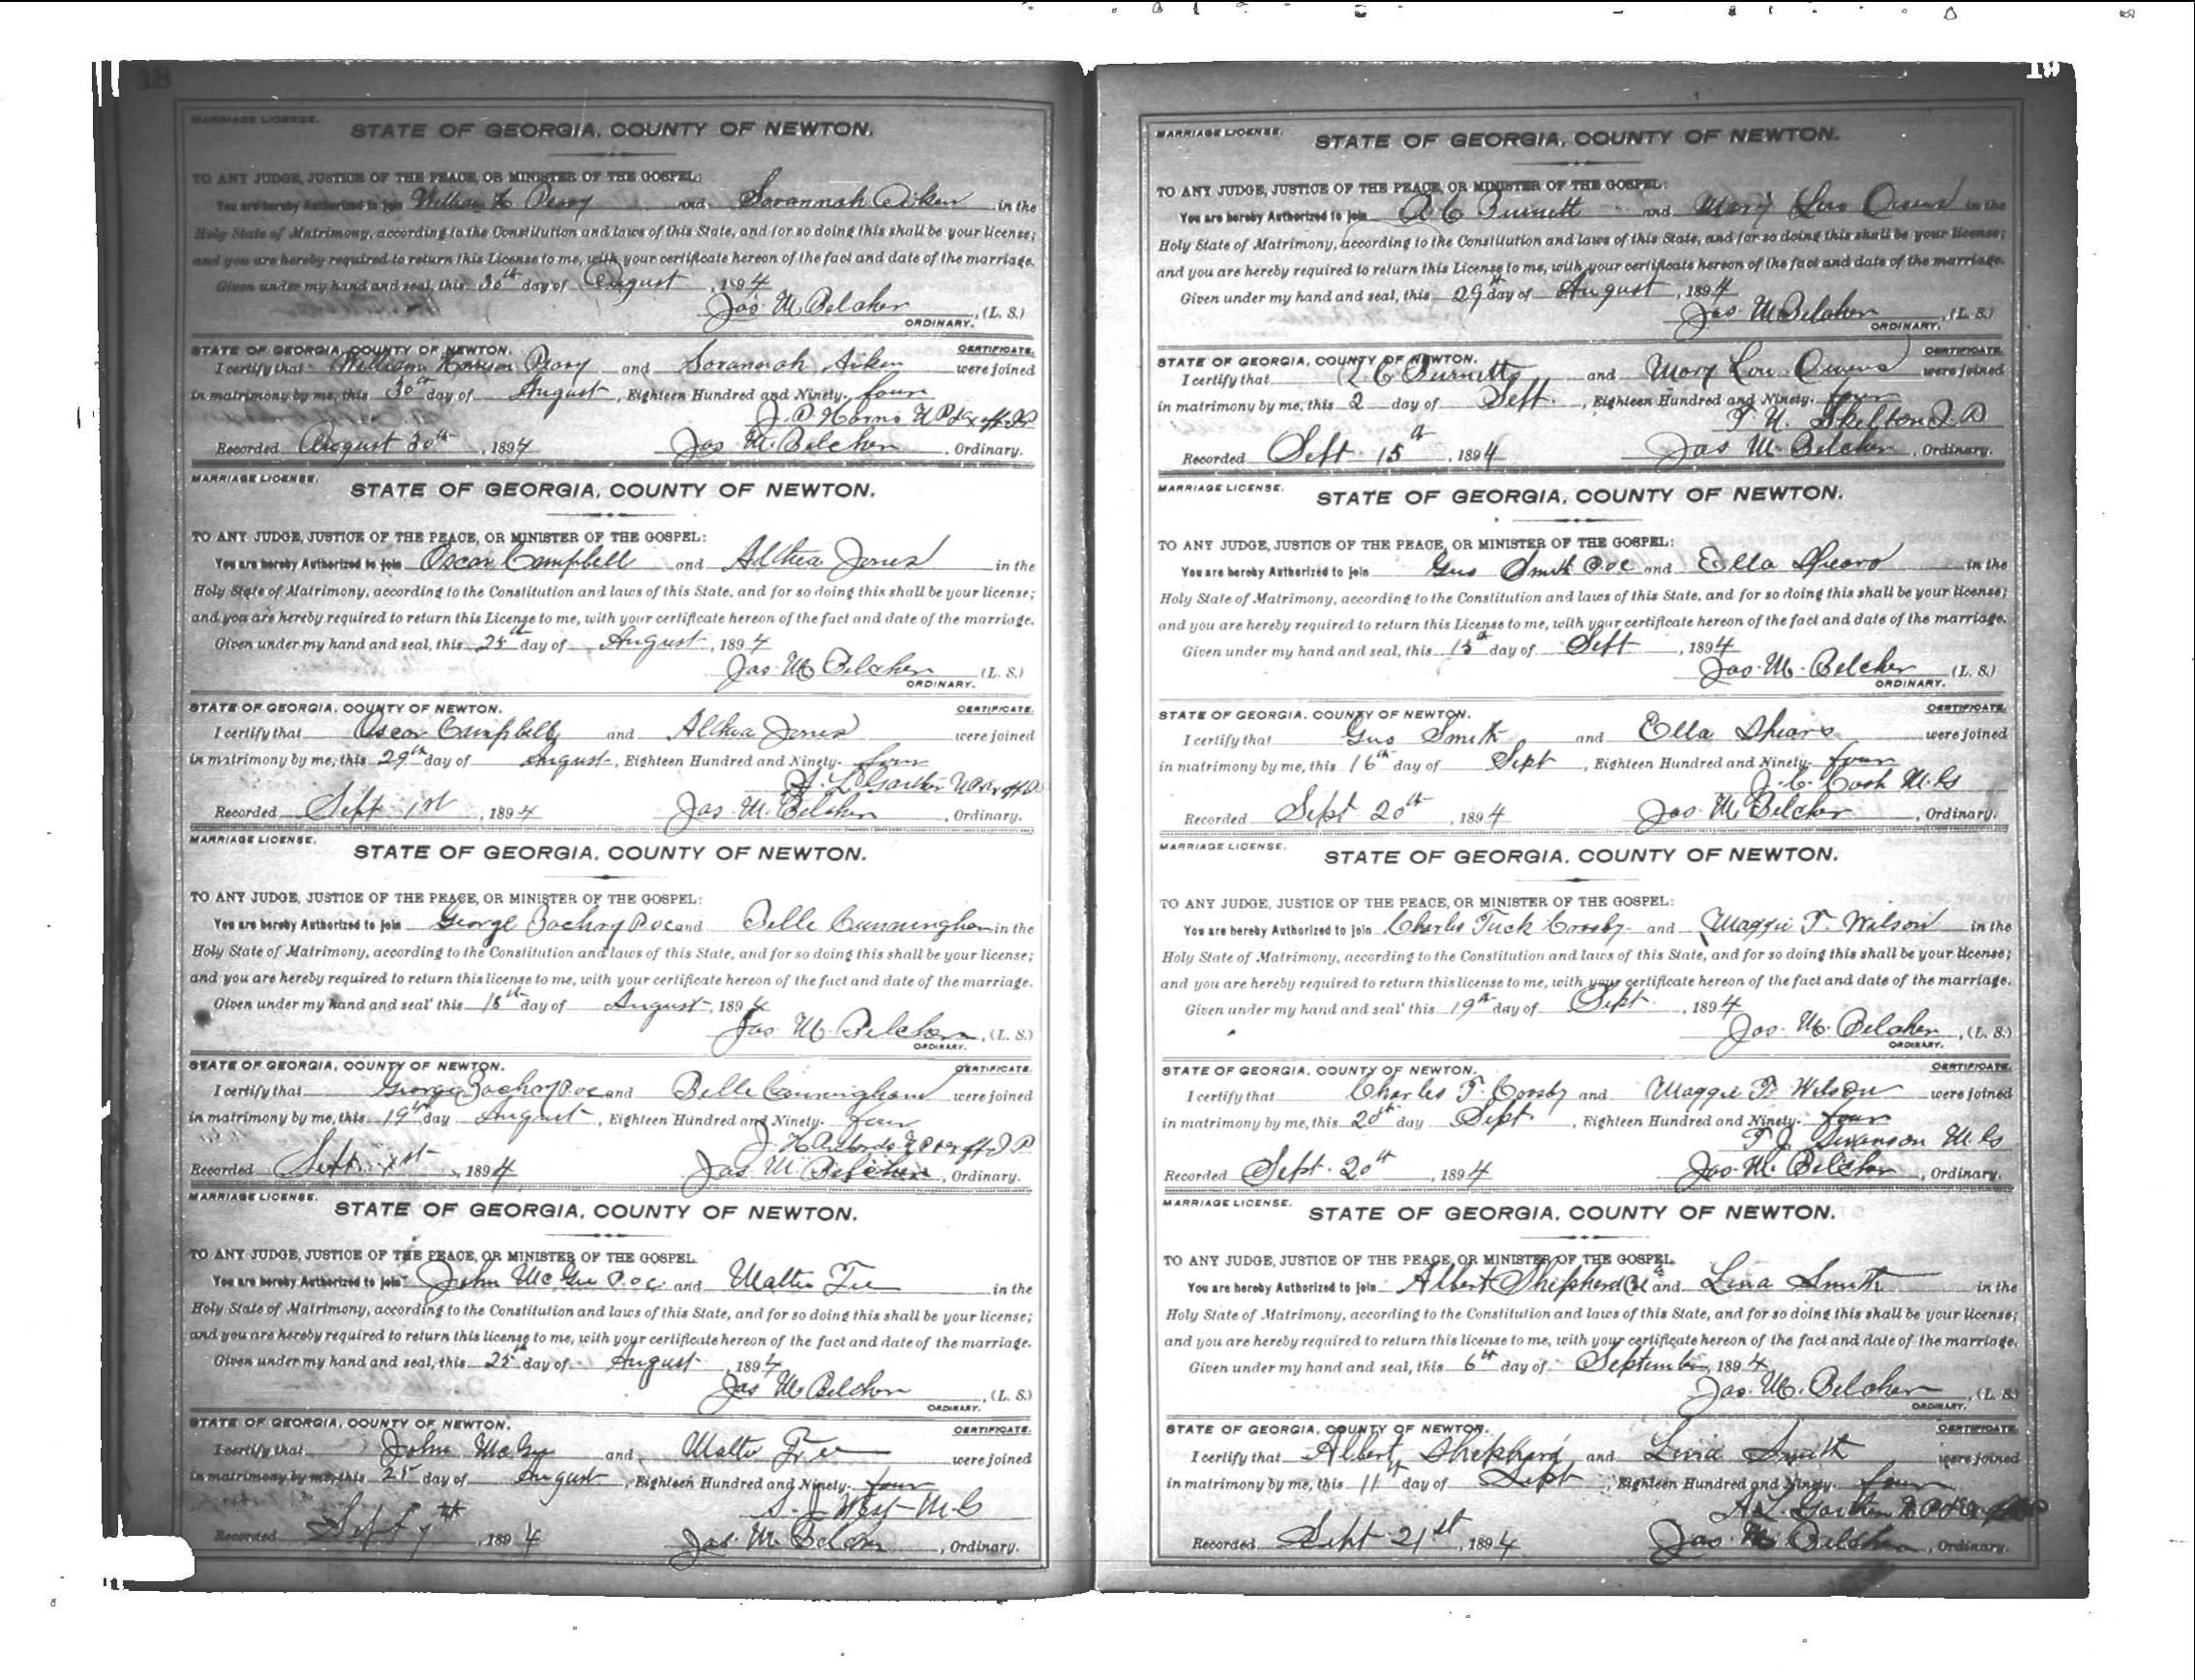 18
MARRIAGE LICENSE.
STATE OF GEORGIA, COUNTY OF NEWTON.
TO ANY JUDGE, JUSTICE OF THE PEACE, OR MINISTER OF THE GOSPEL:
You are hereby Authorized to join William H Perry and Savannah Aiken in the
Holy State of Matrimony, according to the Constitution and laws of this State, and for so doing this shall be your license;
and you are hereby required to return this License to me, with your certificate hereon of the fact and date of the marriage.
Given under my hand and seal, this 30th day of August, 1894
Jas M Belcher, (L. S.)
ORDINARY.
STATE OF GEORGIA, COUNTY OF NEWTON. CERTIFICATE.
I certify that William Perry and Savannah Aiken were joined
in matrimony by me, this 30th day of August, Eighteen Hundred and Ninety-four
J. P. Harris N P & ex off J P
Recorded August 30th, 1894 Jas M. Belcher, Ordinary.
MARRIAGE LICENSE.
STATE OF GEORGIA, COUNTY OF NEWTON.
TO ANY JUDGE, JUSTICE OF THE PEACE, OR MINISTER OF THE GOSPEL:
You are hereby Authorized to join Oscar Campbell and Althea Jones in the
Holy State of Matrimony, according to the Constitution and laws of this State, and for so doing this shall be your license;
and you are hereby required to return this License to me, with your certificate hereon of the fact and date of the marriage.
Given under my hand and seal, this 25th day of August, 1894
Jas M Belcher (L. S.)
ORDINARY.
STATE OF GEORGIA, COUNTY OF NEWTON. CERTIFICATE.
I certify that Oscar Campbell and Althea Jones were joined
in matrimony by me, this 29th day of August, Eighteen Hundred and Ninety-four
A. L. Gaither N P & ex off J P
Recorded Sept 1st, 1894 Jas M. Belcher, Ordinary.
MARRIAGE LICENSE.
STATE OF GEORGIA, COUNTY OF NEWTON.
TO ANY JUDGE, JUSTICE OF THE PEACE, OR MINISTER OF THE GOSPEL:
You are hereby Authorized to join George Zachry P.O.C. and Belle Cunningham in the
Holy State of Matrimony, according to the Constitution and laws of this State, and for so doing this shall be your license;
and you are hereby required to return this license to me, with your certificate hereon of the fact and date of the marriage.
Given under my hand and seal this 18th day of August, 1894
Jas M. Belcher, (L. S.)
ORDINARY.
STATE OF GEORGIA, COUNTY OF NEWTON. CERTIFICATE.
I certify that George Zachry P.O.C. and Belle Cunningham were joined
in matrimony by me, this 19th day August, Eighteen Hundred and Ninety-four
J. N P & ex off J P
Recorded Sept 1st, 1894 Jas M Belcher, Ordinary.
MARRIAGE LICENSE.
STATE OF GEORGIA, COUNTY OF NEWTON.
TO ANY JUDGE, JUSTICE OF THE PEACE, OR MINISTER OF THE GOSPEL.
You are hereby Authorized to join John McGee P.O.C. and Mattie Tee in the
Holy State of Matrimony, according to the Constitution and laws of this State, and for so doing this shall be your license;
and you are hereby required to return this license to me, with your certificate hereon of the fact and date of the marriage.
Given under my hand and seal, this 25th day of August, 1894
Jas M. Belcher, (L. S.)
ORDINARY.
STATE OF GEORGIA, COUNTY OF NEWTON. CERTIFICATE.
I certify that John McGee and were joined
in matrimony by me, this 25 day of August, Eighteen Hundred and Ninety-four
S. J. West M.G
Recorded Sept 7th, 1894 Jas. M. Belcher, Ordinary.
19
MARRIAGE LICENSE.
STATE OF GEORGIA, COUNTY OF NEWTON.
TO ANY JUDGE, JUSTICE OF THE PEACE, OR MINISTER OF THE GOSPEL:
You are hereby Authorized to join A C Burnett and Mary Lou Owens in the
Holy State of Matrimony, according to the Constitution and laws of this State, and for so doing this shall be your license;
and you are hereby required to return this License to me, with your certificate hereon of the fact and date of the marriage.
Given under my hand and seal, this 29th day of August, 1894
Jas M Belcher, (L. S.)
ORDINARY.
STATE OF GEORGIA, COUNTY OF NEWTON. CERTIFICATE.
I certify that C Burnett and Mary Lou Owens were joined
in matrimony by me, this 2 day of Sept., Eighteen Hundred and Ninety-four
Skelton J P
Recorded Sept 15th, 1894 Jas M. Belcher, Ordinary.
MARRIAGE LICENSE.
STATE OF GEORGIA, COUNTY OF NEWTON.
TO ANY JUDGE, JUSTICE OF THE PEACE, OR MINISTER OF THE GOSPEL:
You are hereby Authorized to join Gus Smith P.O.C and Ella Shears in the
Holy State of Matrimony, according to the Constitution and laws of this State, and for so doing this shall be your license;
and you are hereby required to return this License to me, with your certificate hereon of the fact and date of the marriage.
Given under my hand and seal, this 15th day of Sept, 1894
Jas. M. Belcher (L. S.)
ORDINARY.
STATE OF GEORGIA, COUNTY OF NEWTON. CERTIFICATE.
I certify that Gus Smith and Ella Shears were joined
in matrimony by me, this 16th day of Sept, Eighteen Hundred and Ninety-four
J. C. Cook M.G
Recorded Sept 20th, 1894 Jas. M. Belcher, Ordinary.
MARRIAGE LICENSE.
STATE OF GEORGIA, COUNTY OF NEWTON.
TO ANY JUDGE, JUSTICE OF THE PEACE, OR MINISTER OF THE GOSPEL:
You are hereby Authorized to join Charles Tuck Crosby and Maggie F. Wilson in the
Holy State of Matrimony, according to the Constitution and laws of this State, and for so doing this shall be your license;
and you are hereby required to return this license to me, with your certificate hereon of the fact and date of the marriage.
Given under my hand and seal this 19th day of Sept., 1894
Jas. M. Belcher, (L. S.)
ORDINARY.
STATE OF GEORGIA, COUNTY OF NEWTON. CERTIFICATE.
I certify that Charles T. Crosby and Maggie F Wilson were joined
in matrimony by me, this 20th day Sept, Eighteen Hundred and Ninety-four
T J Swanson M.G
Recorded Sept. 20th, 1894 Jas. M. Belcher, Ordinary.
MARRIAGE LICENSE.
STATE OF GEORGIA, COUNTY OF NEWTON.
TO ANY JUDGE, JUSTICE OF THE PEACE, OR MINISTER OF THE GOSPEL.
You are hereby Authorized to join Albert Shepherd and Lina Smith in the
Holy State of Matrimony, according to the Constitution and laws of this State, and for so doing this shall be your license;
and you are hereby required to return this license to me, with your certificate hereon of the fact and date of the marriage.
Given under my hand and seal, this 6th day of September, 1894
Jas. M. Belcher, (L. S.)
ORDINARY.
STATE OF GEORGIA, COUNTY OF NEWTON. CERTIFICATE.
I certify that Albert Shephard and Smith were joined
in matrimony by me, this 11th day of Sept, Eighteen Hundred and Ninety-four
A. L. Gaither N P &
Recorded Sept 21st, 1894 Jas. M. Belcher, Ordinary.